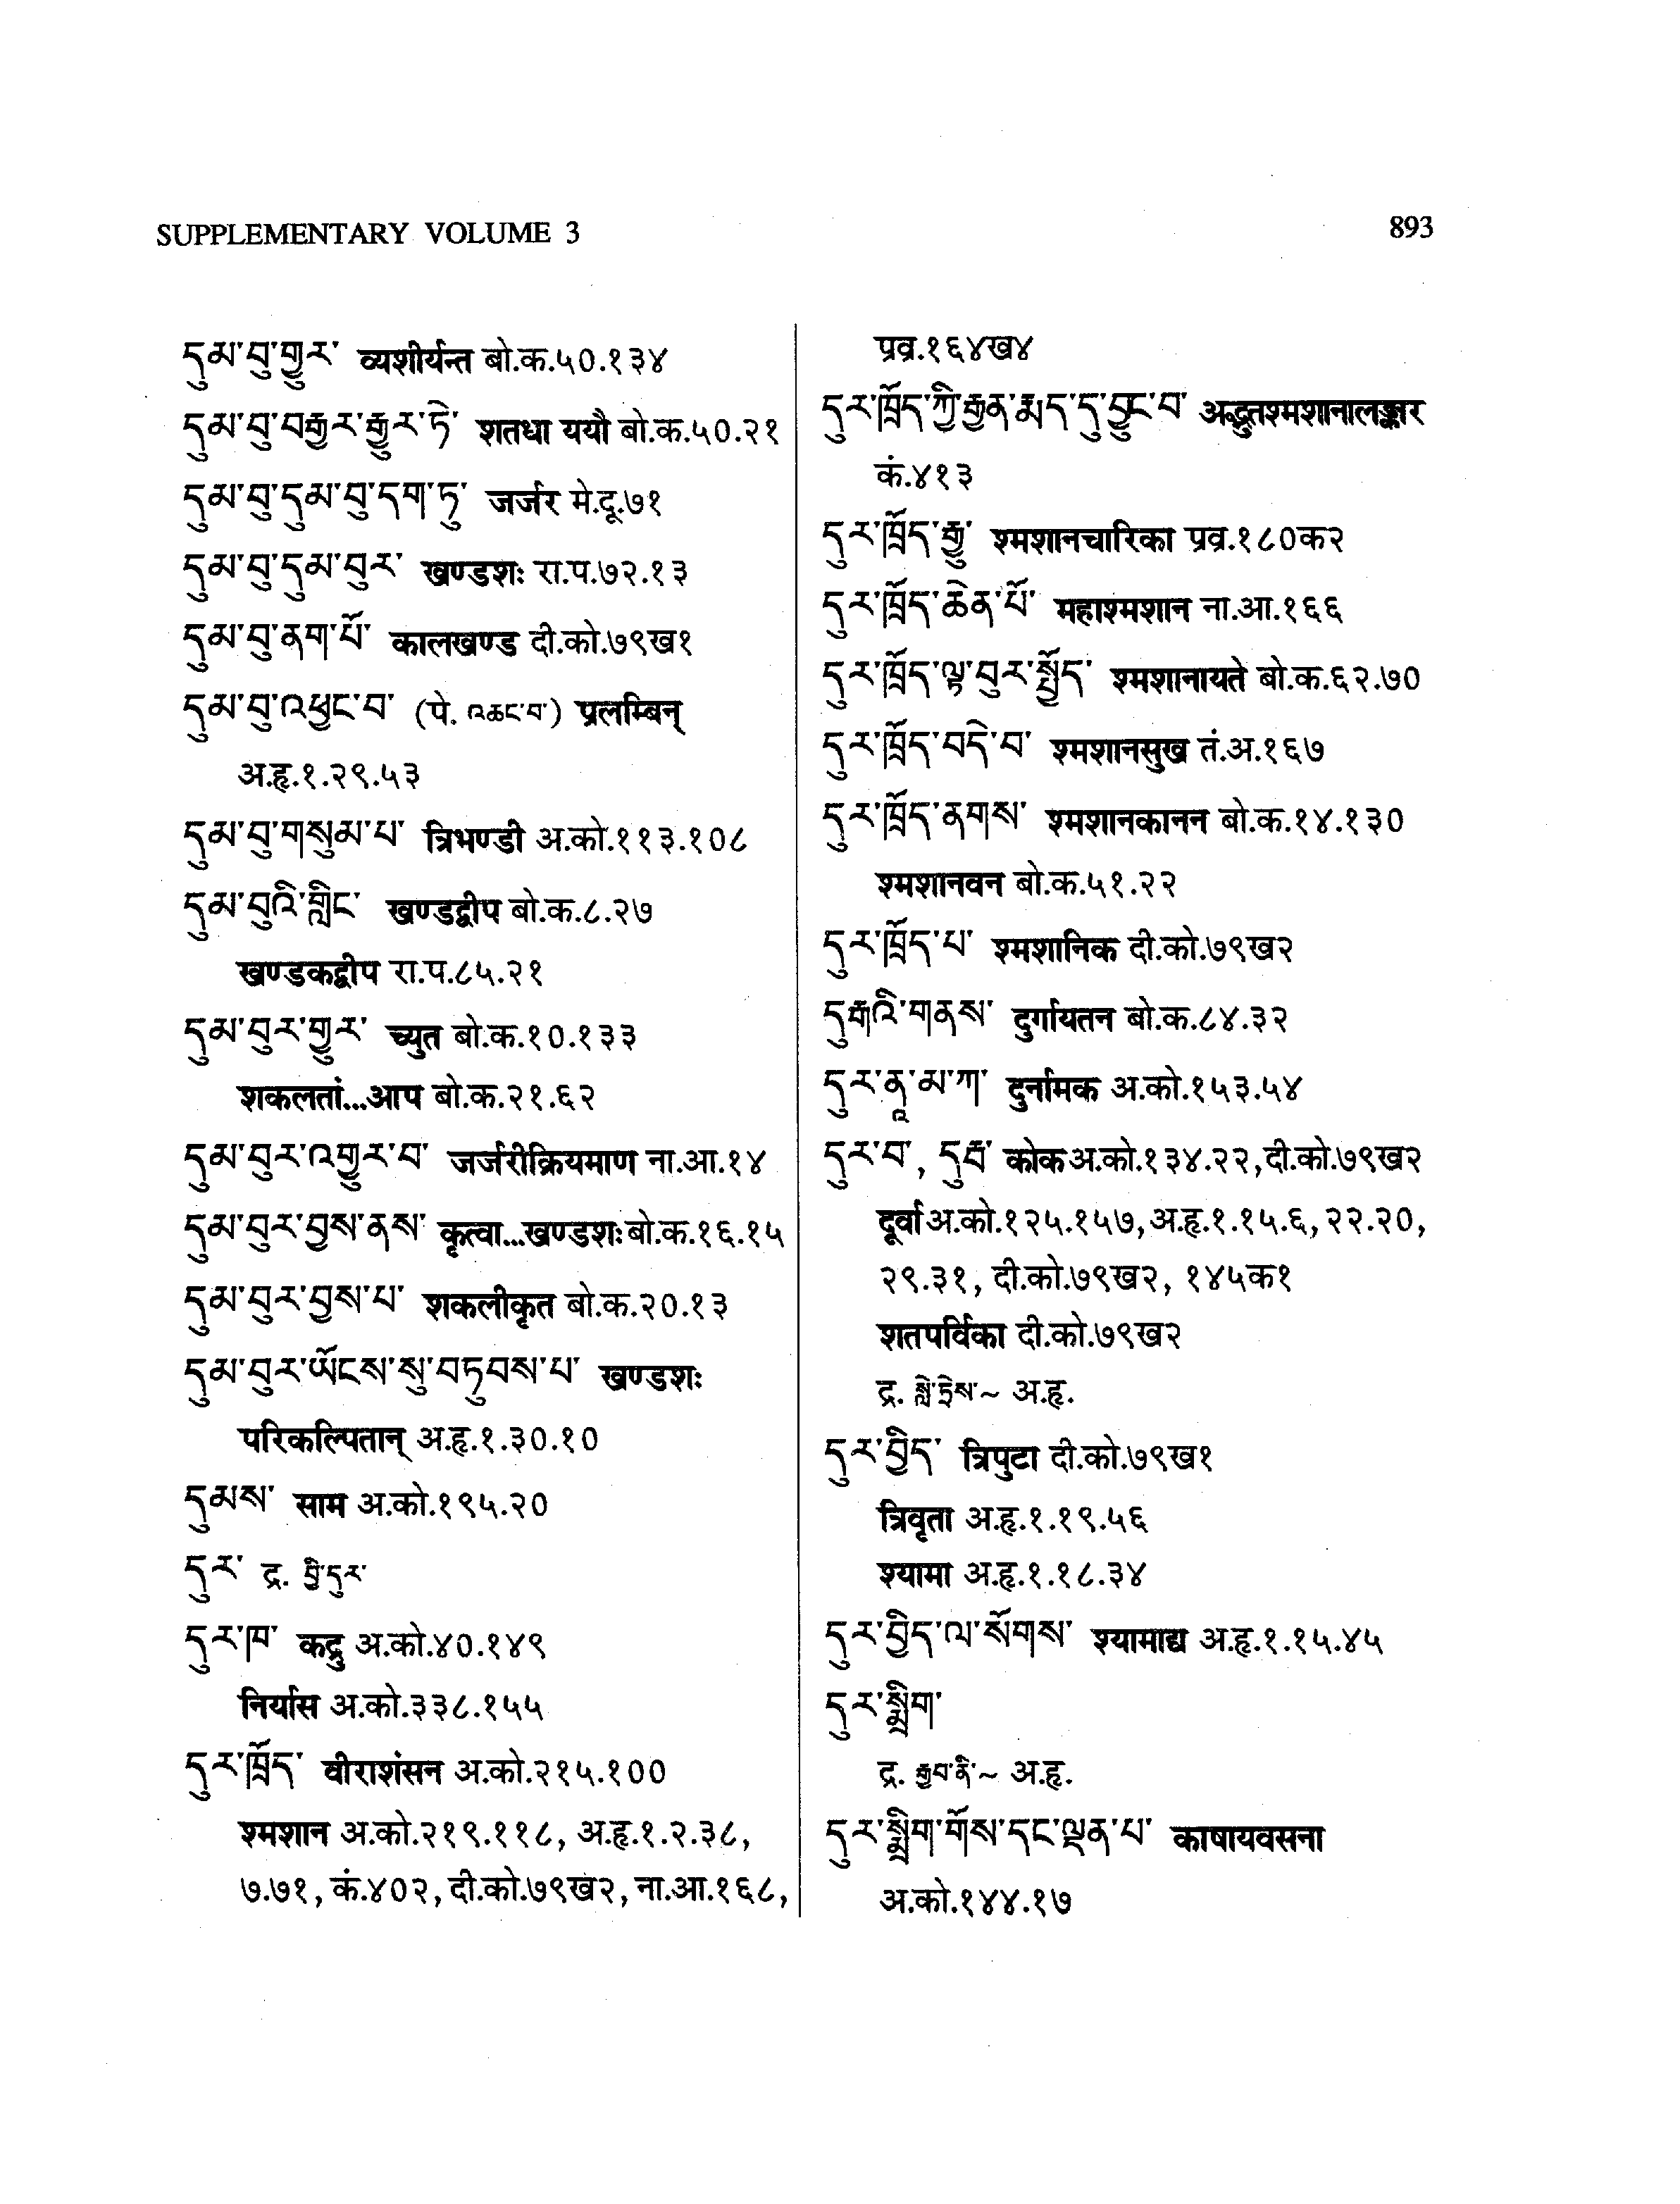 SUPPLEMENTARY VOLUME 3
893
དུམ་བུ་གྱུར་ व्यशीर्यन्त बो.क.५०.१३४
དུམ་བུ་བརྒྱར་རྒྱུར་ཏེ་ शतधा ययौ बो.क.५०.२१
དུམ་བུ་དུམ་བུ་དག་ཏུ་ जर्जर मे.दू.७१
དུམ་བུ་དུམ་བུར་ खण्डशः रा.प.७२.१३
དུམ་བུ་ནག་པོ་ कालखण्ड दी.को.७९ख१
དུམ་བུ་འཕྱང་བ་ (पे. འཆང་བ་) प्रलम्बिन्
अ.हृ.१.२९.५३
དུམ་བུ་གསུམ་པ་ त्रिभण्डी अ.को.११३.१०८
དུམ་བུའི་གླིང་ खण्डद्वीप बो.क.८.२७
खण्डकद्वीप रा.प.८५.२१
དུམ་བུར་གྱུར་ च्युत बो.क.१०.१३३
शकलतां...आप बो.क.२१.६२
དུམ་བུར་འགྱུར་བ་ जर्जरीक्रियमाण ना.आ.१४
དུམ་བུར་བྱས་ནས་ कृत्वा...खण्डशः बो.क.१६.१५
དུམ་བུར་བྱས་པ་ शकलीकृत बो.क.२०.१३
དུམ་བུར་ཡོངས་སུ་བཏུབས་པ་ खण्डशः
परिकल्पितान् अ.हृ.१.३०.१०
དུམས་ साम अ.को.१९५.२०
དུར་ द्र. བྱི་དུར་
དུར་ཁ་ कद्रु अ.को.४०.१४९
निर्यास अ.को.३३८.१५५
དུར་ཁྲོད་ वीराशंसन अ.को.२१५.१००
श्मशान अ.को.२१९.११८, अ.हृ.१.२.३८,
७.७१, कं.४०२, दी.को.७९ख२, ना.आ.१६८,
प्रव्र.१६४ख४
དུར་ཁྲོད་ཀྱི་རྒྱན་རྨད་དུ་བྱུང་བ་ अद्भुतश्मशानालङ्कार
कं.४१३
དུར་ཁྲོད་རྒྱུ་ श्मशानचारिका प्रव्र.१८०क२
དུར་ཁྲོད་ཆེན་པོ་ महाश्मशान ना.आ.१६६
དུར་ཁྲོད་ལྟ་བུར་སྤྱོད་ श्मशानायते बो.क.६२.७०
དུར་ཁྲོད་བདེ་བ་ श्मशानसुख तं.अ.१६७
དུར་ཁྲོད་ནགས་ श्मशानकानन बो.क.१४.१३०
श्मशानवन बो.क.५१.२२
དུར་ཁྲོད་པ་ श्मशानिक दी.को.७९ख२
དུརྒའི་གནས་ दुर्गायतन बो.क.८४.३२
དུར་ནཱ་མ་ཀ་ दुर्नामक अ.को.१५३.५४
དུར་བ་, དུརྦ་ कोक अ.को.१३४.२२, दी.को.७९ख२
दूर्वा अ.को.१२५.१५७, अ.हृ.१.१५.६, २२.२०,
२९.३१, दी.को.७९ख२, १४५क१
शतपर्विका दी.को.७९ख२
द्र. སླེ་ཏྲེས་~ अ.हृ.
དུར་བྱིད་ त्रिपुटा दी.को.७९ख१
त्रिवृता अ.हृ.१.१९.५६
श्यामा अ.हृ.१.१८.३४
དུར་བྱིད་ལ་སོགས་ श्यामाद्य अ.हृ.१.१५.४५
དུར་སྨྲིག་
द्र. རྒྱབ་ནི་~ अ.हृ.
དུར་སྨྲིག་གོས་དང་ལྡན་པ་ काषायवसना
अ.को.१४४.१७